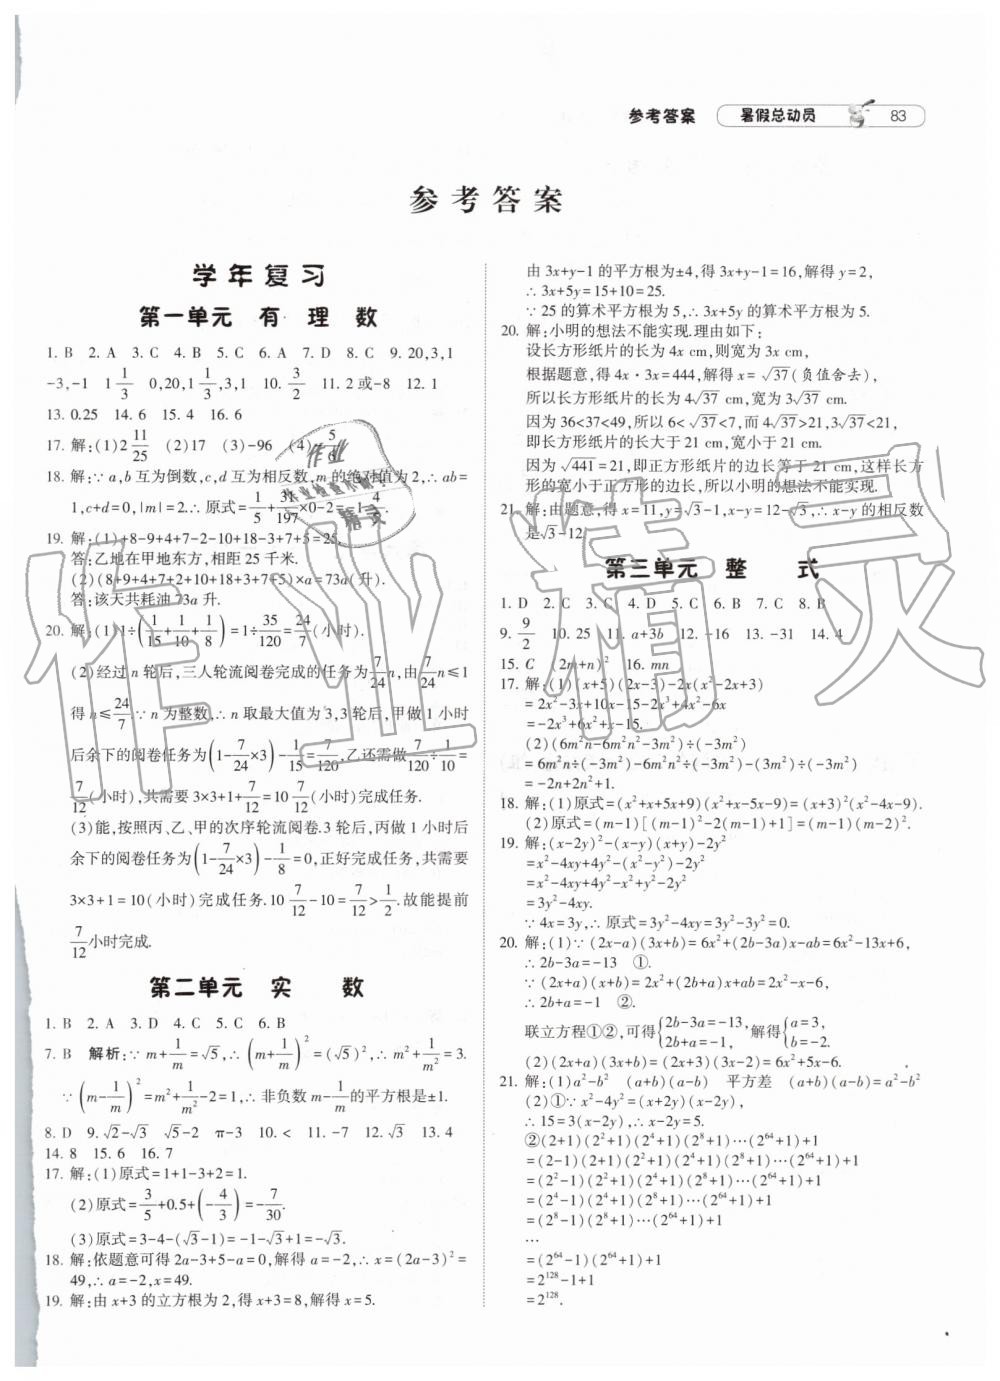 参考答案 暑假总动员 83
参考答案
学年复习
第一单元 有 理 数
1. B 2. A 3. C 4. B 5. C 6. A 7. D 8. C 9. 20,3,1
-3,-1 1 1/3 0,20,1 1/3,3,1 10. 3/2 11. 2或-8 12. 1
13. 0.25 14. 6 15. 4 16. 6
17. 解:(1)2 11/25 (2)17 (3)-96 (4)
18. 解:∵a,b互为倒数,c,d互为相反数,m的绝对值为2,∴ab=
1,c+d=0,|m|=2.∴原式=1/5+31/197×0-2
19. 解:(1)+8-9+4+7-2-10+18-3+7+5=25.
答:乙地在甲地东方,相距25千米.
(2)(8+9+4+7+2+10+18+3+7+5)×a=73a(升).
答:该天共耗油73a升.
20. 解:(1)1÷(1/15+1/10+1/8)=1÷35/120=24/7(小时).
(2)经过n轮后,三人轮流阅卷完成的任务为7/24n,由7/24n≤1
得n≤24/7.∵n为整数,∴n取最大值为3,3轮后,甲做1小时
后余下的阅卷任务为(1-7/24×3)-1/15=7/120,乙还需做7/120÷1/10=
7/12(小时),共需要3×3+1+7/12=10 7/12(小时)完成任务.
(3)能,按照丙、乙、甲的次序轮流阅卷.3轮后,丙做1小时后
余下的阅卷任务为(1-7/24×3)-1/8=0,正好完成任务,共需要
3×3+1=10(小时)完成任务.10 7/12-10=7/12>1/2.故能提前
7/12小时完成.
第二单元 实 数
1. B 2. A 3. D 4. C 5. C 6. B
7. B 解析:∵m+1/m=√5,∴(m+1/m)²=(√5)²,∴m²+1/m²=3.
∵(m-1/m)²=m²+1/m²-2=1,∴非负数m-1/m的平方根是±1.
8. D 9. √2-√3 √5-2 π-3 10. < 11. -7 12. √3 13. 4
14. 8 15. 6 16. 7
17. 解:(1)原式=1+1-3+2=1.
(2)原式=3/5+0.5+(-4/3)=-7/30.
(3)原式=3-4-(√3-1)=-1-√3+1=-√3.
18. 解:依题意可得2a-3+5-a=0,解得a=-2,∴x=(2a-3)²=
49,∴a=-2,x=49.
19. 解:由x+3的立方根为2,得x+3=8,解得x=5.
由3x+y-1的平方根为±4,得3x+y-1=16,解得y=2,
∴3x+5y=15+10=25.
∵25的算术平方根为5,∴3x+5y的算术平方根为5.
20. 解:小明的想法不能实现.理由如下:
设长方形纸片的长为4x cm,则宽为3x cm,
根据题意,得4x·3x=444,解得x=√37(负值舍去),
所以长方形纸片的长为4√37 cm,宽为3√37 cm.
因为36<37<49,所以6<√37<7,而4√37>21,3√37<21,
即长方形纸片的长大于21 cm,宽小于21 cm.
因为√441=21,即正方形纸片的边长等于21 cm,这样长方
形的宽小于正方形的边长,所以小明的想法不能实现.
21. 解:由题意,得x=11,y=√3-1,x-y=12-√3,∴x-y的相反数
是√3-12.
第三单元 整 式
1. D 2. C 3. C 4. D 5. C 6. B 7. C 8. B
9. 9/2 10. 25 11. a+3b 12. -16 13. -31 14. 4
15. C (2m+n)² 16. mn
17. 解:(1)(x+5)(2x-3)-2x(x²-2x+3)
=2x²-3x+10x-15-2x³+4x²-6x
=-2x³+6x²+x-15.
(2)(6m²n-6m²n²-3m²)÷(-3m²)
=6m²n÷(-3m²)-6m²n²÷(-3m²)-(3m²)÷(-3m²)
=-2n+2n²+1.
18. 解:(1)原式=(x²+x+5x+9)(x²+x-5x-9)=(x+3)²(x²-4x-9).
(2)原式=(m-1)[(m-1)²-2(m-1)+1]=(m-1)(m-2)².
19. 解:(x-2y)²-(x-y)(x+y)-2y²
=x²-4xy+4y²-(x²-y²)-2y²
=x²-4xy+4y²-x²+y²-2y²
=3y²-4xy.
∵4x=3y,∴原式=3y²-4xy=3y²-3y²=0.
20. 解:(1)∵(2x-a)(3x+b)=6x²+(2b-3a)x-ab=6x²-13x+6,
∴2b-3a=-13 ①.
∵(2x+a)(x+b)=2x²+(2b+a)x+ab=2x²-x-6,
∴2b+a=-1 ②.
联立方程①②,可得{2b-3a=-13, 2b+a=-1, 解得{a=3, b=-2.
(2)(2x+a)(3x+b)=(2x+3)(3x-2)=6x²+5x-6.
21. 解:(1)a²-b² (a+b)(a-b) 平方差 (a+b)(a-b)=a²-b²
(2)①∵x²-4y²=(x+2y)(x-2y),
∴15=3(x-2y),∴x-2y=5.
②(2+1)(2²+1)(2⁴+1)(2⁸+1)…(2⁶⁴+1)+1
=(2-1)(2+1)(2²+1)(2⁴+1)(2⁸+1)…(2⁶⁴+1)+1
=(2²-1)(2²+1)(2⁴+1)(2⁸+1)…(2⁶⁴+1)+1
=(2⁴-1)(2⁴+1)(2⁸+1)…(2⁶⁴+1)+1
=(2⁸-1)(2⁸+1)…(2⁶⁴+1)+1
…
=(2⁶⁴-1)(2⁶⁴+1)+1
=2¹²⁸-1+1
=2¹²⁸.
作业精灵